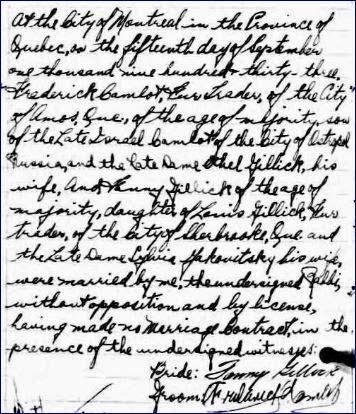 At the City of Montreal in the Province of
Quebec, on the fifteenth day of September
one thousand nine hundred thirty-three.
Frederick Camlot, Fur Trader, of the City
of Amos, Que, of the age of majority, son
of the Late Israel Camlot of the City of Ostropol
Russia, and the Late Dame Ethel Gillick, his
wife, And Fanny Gillick of the age of
majority, daughter of Louis Gillick, Fur
trader, of the City of Sherbrooke, Que and
the Late Dame Sylvia Yakovitsky his wife,
were married by me, the undersigned Rabbi,
without opposition and by license,
having made no Marriage Contract, in the
presence of the undersigned witnesses:
Bride: Fanny Gillick
Groom: Frederick Camlot